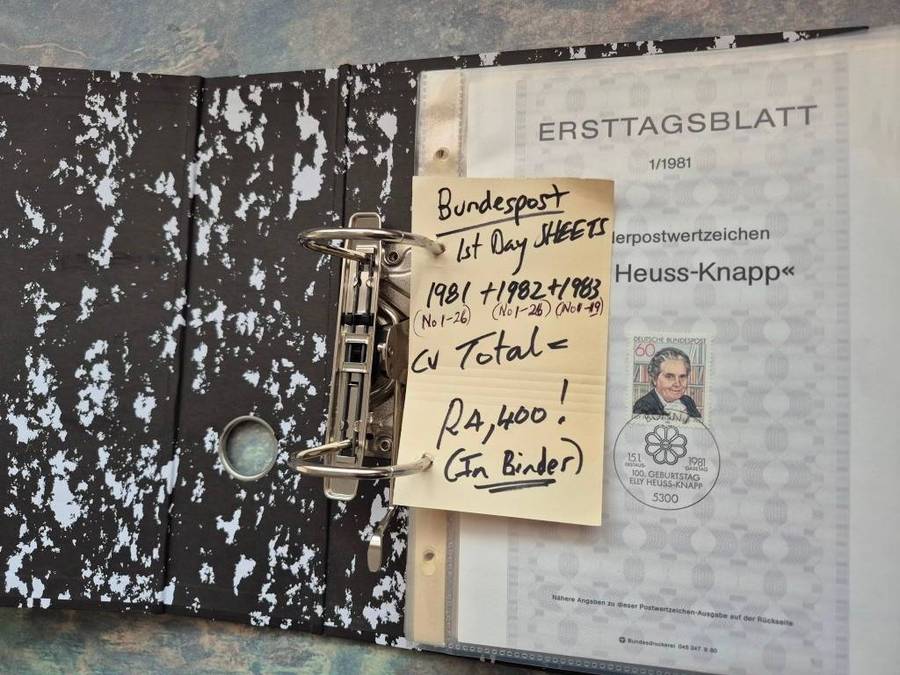 Bundespost
1st Day SHEETS
1981 + 1982 + 1983
(No 1-26) (No 1-26) (No 1-19)
CV Total =
R4,400!
(In Binder)
ERSTTAGSBLATT
1/1981
derpostwertzeichen
Heuss-Knapp«
DEUTSCHE BUNDESPOST
60
BONN 1
15.1. 1981
ERSTTAG
100. GEBURTSTAG
ELLY HEUSS-KNAPP
5300
Nähere Angaben zu dieser Postwertzeichen-Ausgabe auf der Rückseite
Bundesdruckerei 045 347 9 80